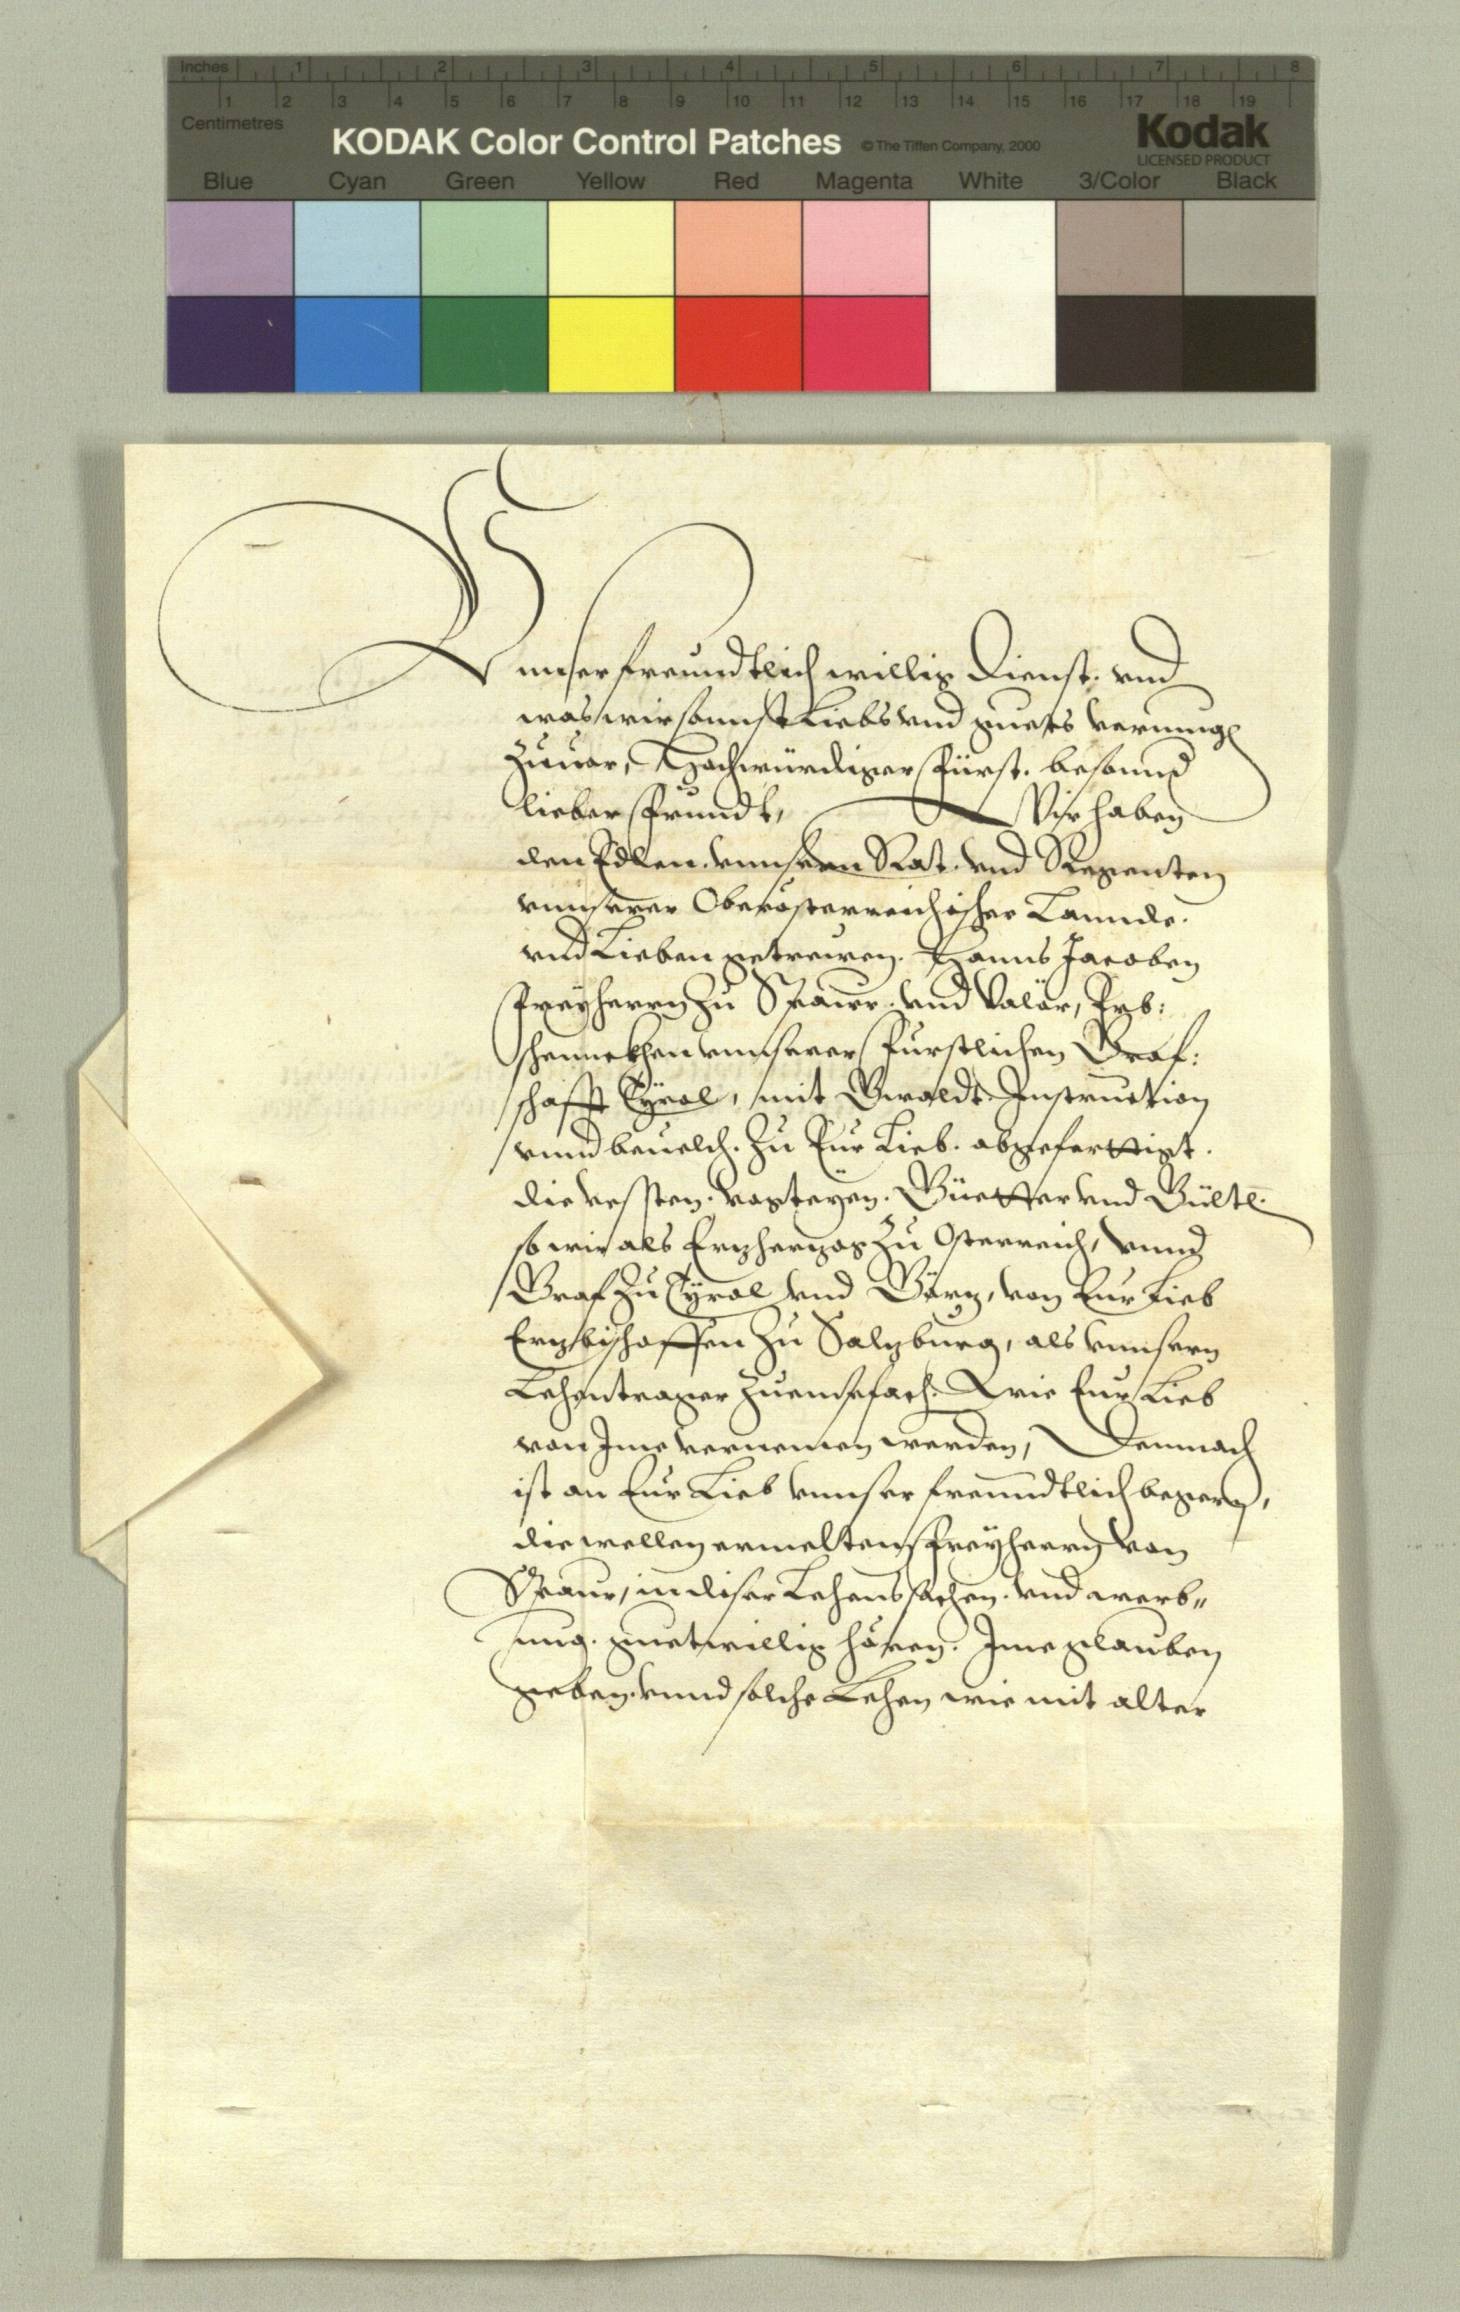 Inches 1 2 3 4 5 6 7 8
1 2 3 4 5 6 7 8 9 10 11 12 13 14 15 16 17 18 19
Centimetres
KODAK Color Control Patches © The Tiffen Company, 2000 Kodak
LICENSED PRODUCT
Blue Cyan Green Yellow Red Magenta White 3/Color Black
Vnnser freundtlich willig Dienst. vnd
was wir sonnst Liebs vnd guets vermugen
Zuuor, Hochwürdiger Fürst. besonnd
lieber Freundt, Wir haben
den Edlen. vnnsern Rat. vnd Regenten
vnnserer Oberösterreichischer Lannde.
vnd Lieben getrewen. Hanns Jacoben
Freyherrn Zu Spaur. vnd Valör, Erb:
schennckhen vnnserer Furstlichen Graf:
schafft Tÿrol, mit Gwaldt. Instruction
vnnd beuelch. Zu Eur Lieb. abgeferttigt.
die vessten. vogteyen. Güetter vnd Gülten
so wir als Ertzhertzog Zu Osterreich, vnnd
Graf Zu Tÿrol vnd Görtz, von Eur Lieb
Ertzbischoffen Zu Saltzburg, als vnnsern
Lehentrager Zuempfach. Wie Eur Lieb
von Ime vernemen werden, Demnach
ist an Eur Lieb vnnser freunndtlich begern,
die wellen ermelten Freyherrn von
Spaur, in diser Lehens sachen. vnd werb„
ung. guetwillig hören. Ime glauben
geben. vnnd solche Lehen wie mit alter